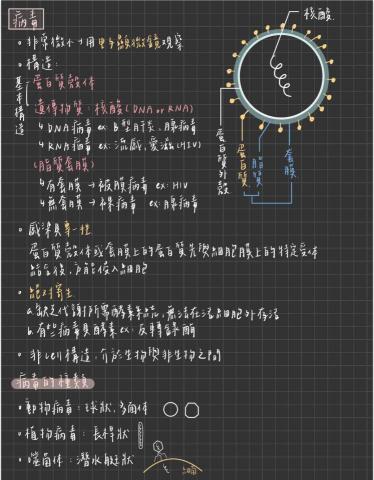 病毒
核酸
• 非常微小→用電子顯微鏡觀察
• 構造:
基本構造
蛋白質殼体
遺傳物質: 核酸(DNA or RNA)
↳ DNA病毒 ex: B型肝炎、腺病毒
↳ RNA病毒 ex: 流感、愛滋(HIV)
(脂質套膜)
↳ 有套膜 → 被膜病毒 ex: HIV
↳ 無套膜 → 裸病毒 ex: 腺病毒
蛋白質外殼
蛋白質
脂質
套膜
• 感染具專一性
蛋白質殼体或套膜上的蛋白質先與細胞膜上的特定受体
結合後,方能侵入細胞
• 絕對寄生
a. 缺乏代謝所需酵素系統, 無法在活細胞外存活
b. 有些病毒具酵素 ex: 反轉錄酶
• 非cell構造, 介於生物與非生物之間
病毒的種類
• 動物病毒: 球狀, 多面体
• 植物病毒: 長桿狀
• 噬菌体: 潛水艇狀